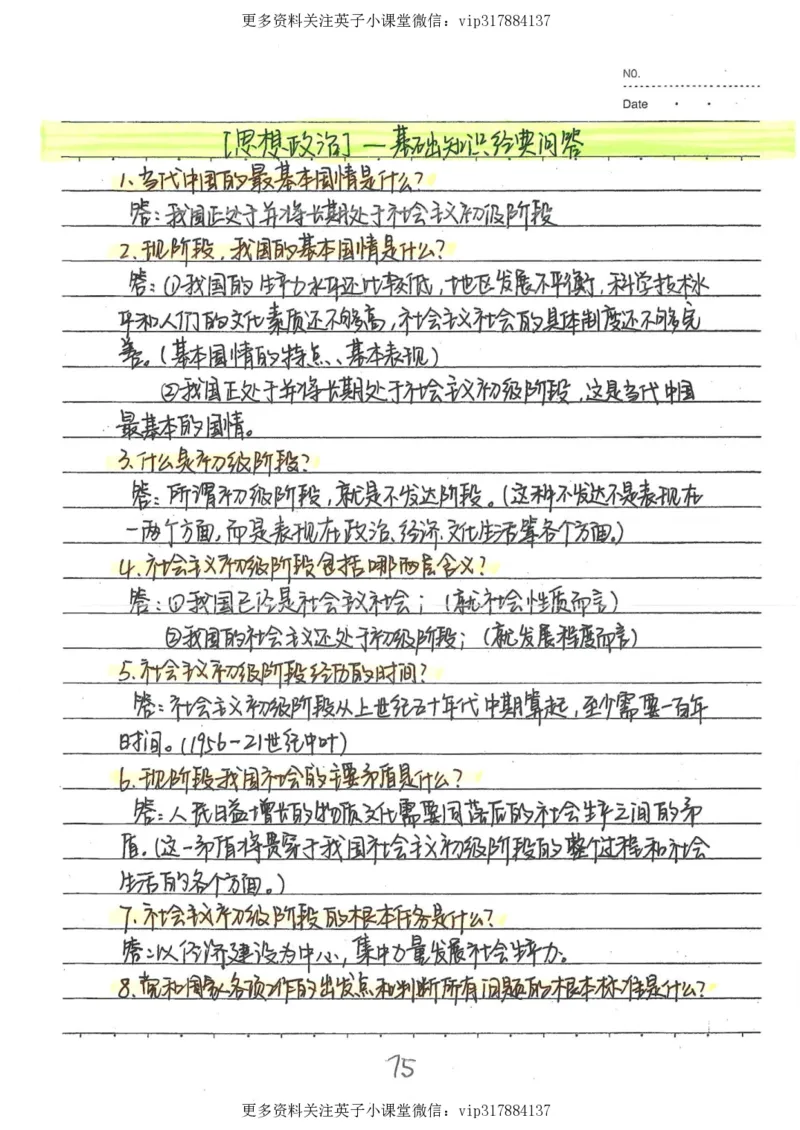 更多资料关注英子小课堂微信：vip317884137
NO.
Date
[思想政治]—基础知识经典问答
1.当代中国的最基本国情是什么?
答:我国正处于并将长期处于社会主义初级阶段
2.现阶段,我国的基本国情是什么?
答:①我国的生产力水平还比较低,地区发展不平衡,科学技术水
平和人们的文化素质还不够高,社会主义社会的具体制度还不够完
善。(基本国情的特点、基本表现)
②我国正处于并将长期处于社会主义初级阶段,这是当代中国
最基本的国情。
3.什么是初级阶段?
答:所谓初级阶段,就是不发达阶段。(这种不发达不是表现在
一两个方面,而是表现在政治、经济、文化生活等各个方面。)
4.社会主义初级阶段包括哪两层含义?
答:①我国已经是社会主义社会;(就社会性质而言)
②我国的社会主义还处于初级阶段;(就发展程度而言)
5.社会主义初级阶段经历的时间?
答:社会主义初级阶段从上世纪五十年代中期算起,至少需要一百年
时间。(1956-21世纪中叶)
6.现阶段我国社会的主要矛盾是什么?
答:人民日益增长的物质文化需要同落后的社会生产之间的矛
盾。(这一矛盾将贯穿于我国社会主义初级阶段的整个过程和社会
生活的各个方面。)
7.社会主义初级阶段的根本任务是什么?
答:以经济建设为中心,集中力量发展社会生产力。
8.党和国家各项工作的出发点和判断所有问题的根本标准是什么?
75
更多资料关注英子小课堂微信：vip317884137